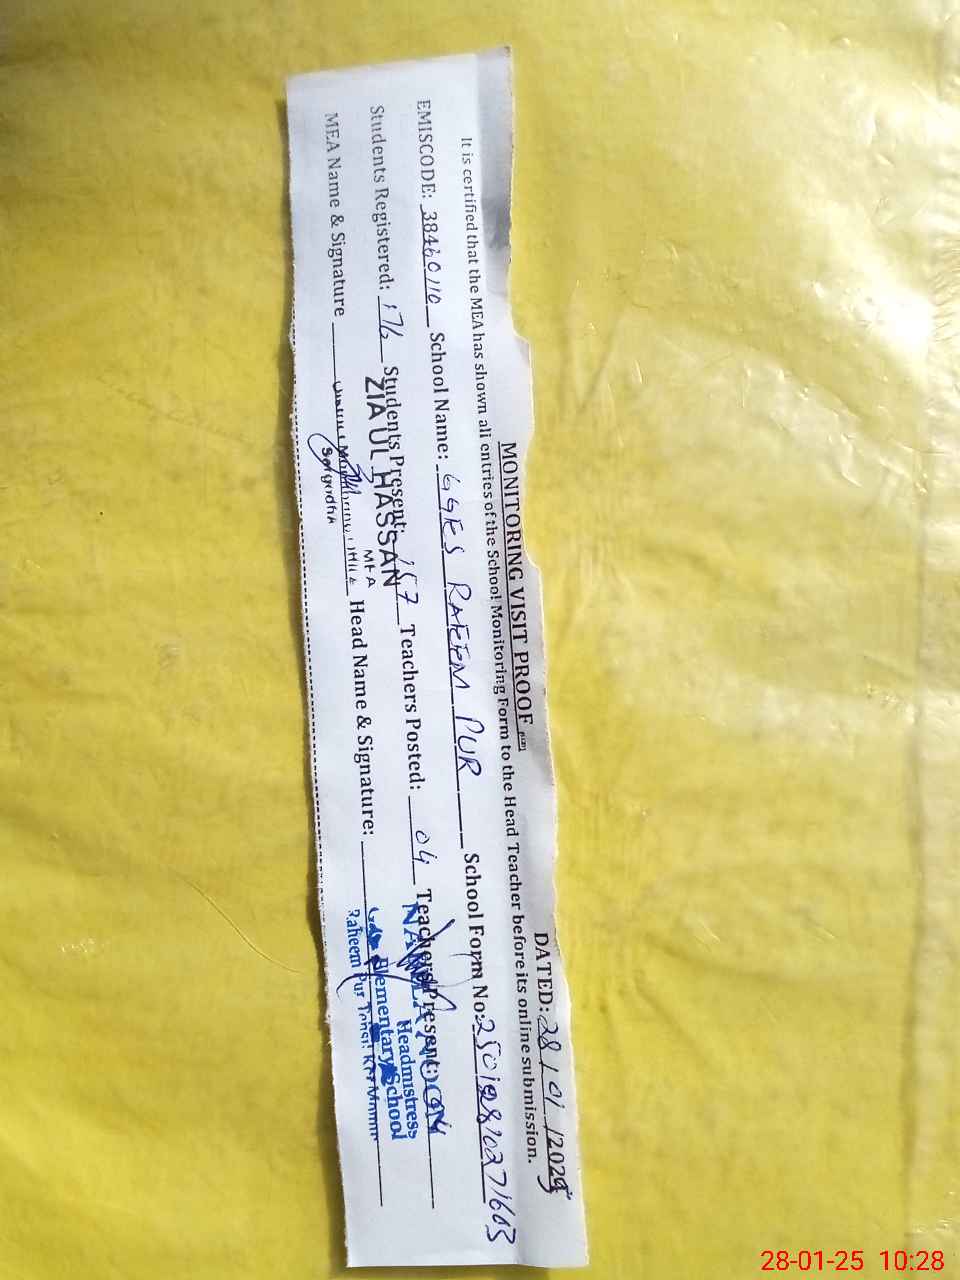 MONITORING VISIT PROOF
DATED: 28/01/2025
It is certified that the MEA has shown all entries of the School Monitoring Form to the Head Teacher before its online submission.
EMISCODE: 38460110 School Name: GGES RAEEM PUR School Form No: 25012810271603
Students Registered: 176 Students Present: 157 Teachers Posted: 04 Teachers Present: 04
ZIA UL HASSAN
MEA
Sargodha
NABEELA NOON
Headmistress
MEA Name & Signature Head Name & Signature:
Elementary School
Raheem Pur
28-01-25 10:28